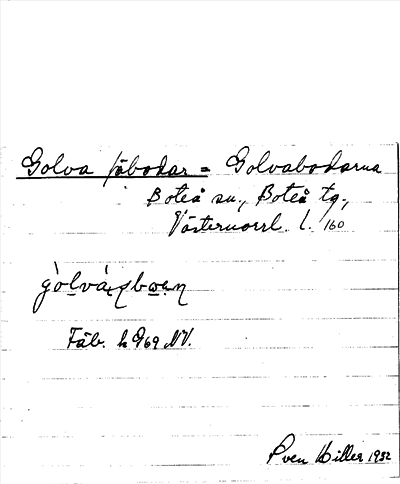 Golva fäbodar = Golvabodarna
Boteå sn., Boteå tg.,
Västernorrl. l. 160
Fäb. h 969 NV.
Sven Hiller 1932